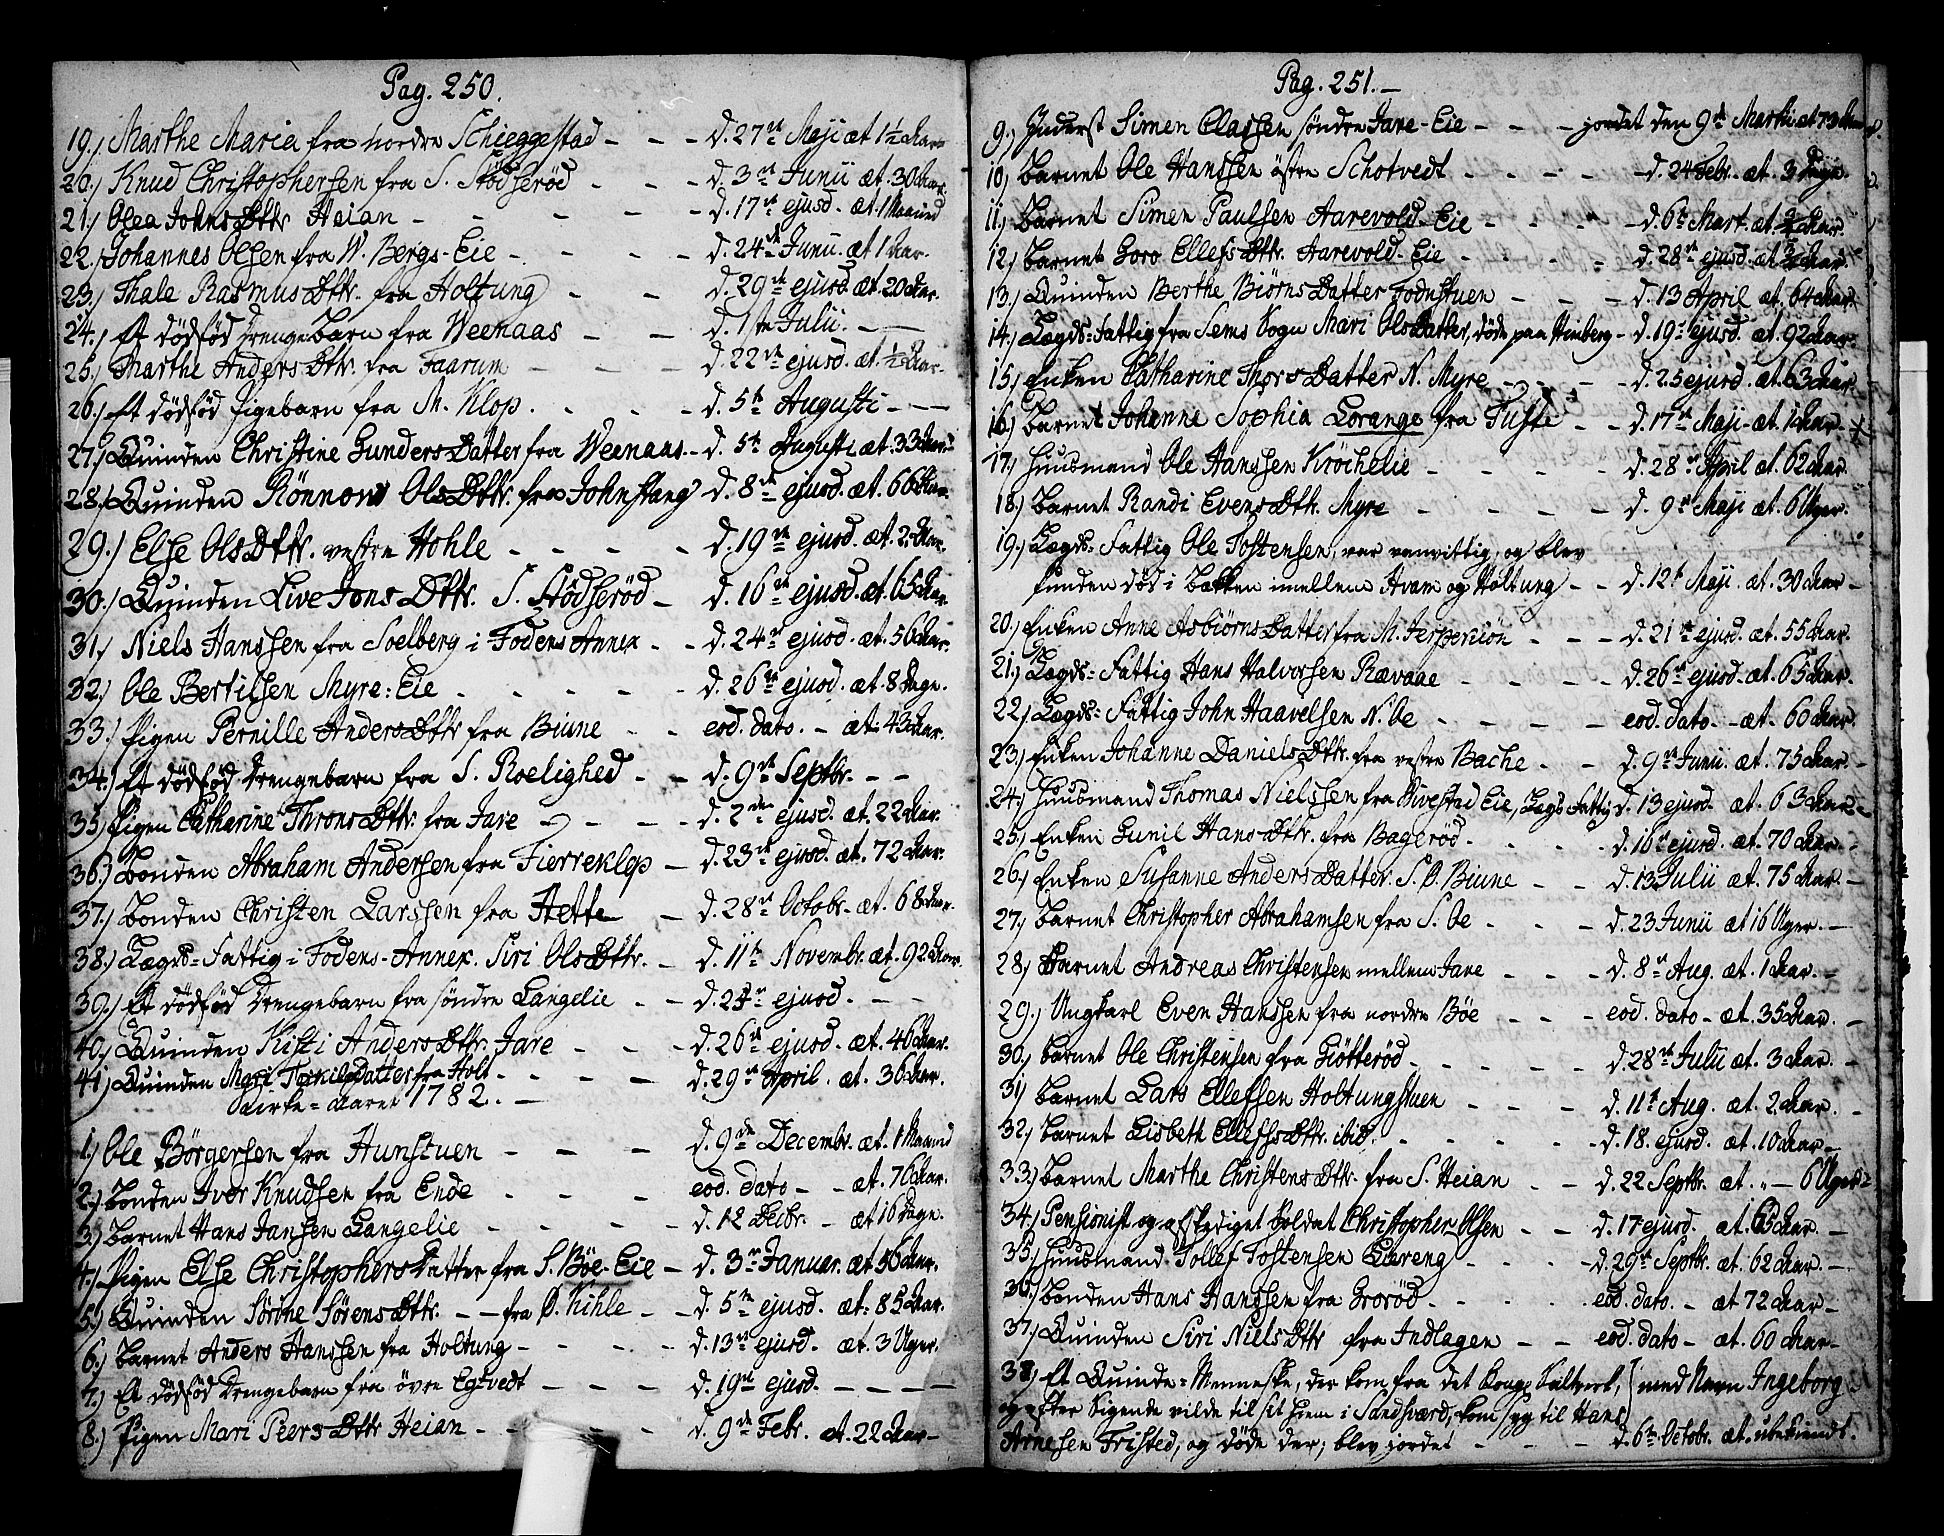 Pag. 250.
19.) Marthe Maria fra nordre Schieggestad - - - d. 27de Maji æt 1½ Aar
20.) Knud Christophersen fra S. Stodserød - - - d. 3de Junii æt. 30 Aar.
21.) Olea Johns Dttr Heian - - - - d. 17de ejusd. æt. 1 Maaned
22.) Johannes Olsen fra W. Bergs-Eie - - - d. 24de Junii æt 1 Aar.
23.) Thale Rasmus Dttr. fra Holtung - - d. 29de ejusd. æt. 20 Aar.
24.) Et dødfød Drengebarn fra Weenaas - - d. 1ste Julii. - -
25.) Marthe Anders Dttr. fra Faarum - - - d. 22de ejusd. æt. ½ Aar.
26.) Et dødfød Pigebarn fra M. Klop. - - - d. 5te Augusti - - -
27.) Quinden Christine Gunders Datter fra Weenaas - d. 5te Augusti æt. 33 Aar.
28.) Quinden Rönnow Ols Dttr. fra Johnstang d. 8de ejusd. æt. 66 Aar.
29.) Else Ols Dttr. vestre Hohle - - - - d. 19de ejusd. æt. 2 Aar.
30.) Quinden Live Jons Dttr. S. Stödserød - d. 16de ejusd. æt. 65 Aar.
31.) Niels Hanssen fra Soelberg i Fodens Annex - - d. 24de ejusd. æt. 56 Aar.
32.) Ole Bertilsen Myre-Eie - - - - - d. 26de ejusd. æt. 8 Dage.
33.) Pigen Pernille Anders Dttr fra Biune - - eod. dato. - æt. 43 Aar.
34.) Et dødfød Drengebarn fra S. Roelighed - - d. 9de Septbr. - -
35.) Pigen Catharine Throns Dttr. fra Jare - - - d. 2den ejusd. æt. 22 Aar.
36.) Bonden Abraham Andersen fra Fierreklop - d. 23de ejusd. æt. 72 Aar.
37.) Bonden Christen Larssen fra Hette - d. 28de Octobr. æt. 68 Aar.
38.) Lægds-Fattig i Fodens-Annex. Siri Ols Dttr. - d. 11te Novembr. æt. 92 Aar.
39.) Et dødfød Drengebarn fra søndre Langelie - - d. 25de ejusd. - -
40.) Quinden Kisti Anders Dttr. Jare - - - d. 26de ejusd. æt. 46 Aar.
41.) Quinden Mari Torkilsdatter fra Holt - - - - d. 29de April. æt. 36 Aar.
Kirke-Aaret 1782. -
1.) Ole Börgersen fra Hunstuen - - - d. 9de Decembr. æt. 1 Maaned
2.) Bonden Iver Knudsen fra Ende - - - eod. dato - - æt. 76 Aar.
3.) Barnet Hans Jansen Langelie - - - - d. 12 Decbr. - æt 16 Dage.
4.) Pigen Else Christophers Datter fra S. Bøe-Eie - d. 3de Januar. æt. 56 Aar.
5.) Quinden Sörine Sörens Dttr. - - fra Ø. Kihle - - d. 5te ejusd. æt. 85 Aar.
6.) Barnet Anders Hanssen fra Holtung - - - - d. 13de ejusd. æt. 3 Uger.
7.) Et dødfød Drengebarn fra øvre Egtvedt - - - d. 19de ejusd. - - - -
8.) Pigen Mari Peers Dttr Heian - - - - d. 9de Febr. æt. 22 Aar -
Pag. 251. -
9.) Inderst Simen Classen søndre Jare-Eie - - - jordet den 9de Martii æt 73 Aar
10.) Barnet Ole Hanssen östre Schotvedt - - - - d. 24 Febr. æt. 3 Dage.
11.) Barnet Simen Paulsen Aarevold-Eie - - - - d. 6te Mart. æt. ¾ Aar.
12.) Barnet Goro Ellefs Dttr. Aarevold-Eie - - - - d. 28de ejusd. æt. ¾ Aar.
13.) Quinden Berthe Biörns Datter Fodnstuen - - - d. 13 April æt. 64 Aar.
14.) Lægds-Fattig fra Sems Sogn Mari Ols Datter, døde paa Himberg - d. 19de ejusd. æt. 92 Aar.
15.) Enken Catharine Thors Datter N. Myre - - - - d. 25 ejusd. æt. 63 Aar.
16.) Barnet Johanne Sophia Lorange fra Tufte - - d. 17de Maji - æt. 1 Aar.
17.) Huusmand Ole Hanssen Kröchelie - - - - d. 28de April æt. 62 Aar.
18.) Barnet Randi Evens Dttr. Myre - - - - d. 9de Maji æt. 6 Uger.
19.) Lægds-Fattig Ole Tostensen, var vanvittig, og blev
funden død i Bakken imellem Hvam og Holtung - - d. 12te Maji. æt. 30 Aar -
20.) Enken Anne Asbiörns Datter fra M. Jespersön - - - d. 21de ejusd. æt. 55 Aar.
21.) Lægds-Fattig Hans Halvorsen Rævaae - - - - d. 26de ejusd. æt. 65 Aar.
22.) Lægds-Fattig John Haavelsen N. Oe - - - - eod. dato - æt. 60 Aar.
23.) Enken Johanne Daniels Dttr. fra vestre Bache - - d. 9de Junii. æt. 75 Aar. -
24.) Huusmand Thomas Nielssen fra Sivestad Eie, Lægs-Fattig d. 13 ejusd. æt. 63 Aar. -
25.) Enken Gunil Hans Dttr. fra Bagerød - - - - d. 16de ejusd. æt. 70 Aar. -
26.) Enken Susanne Anders Datter. S. Ø. Biune - - d. 13 Julii æt. 75 Aar. -
27.) Barnet Christopher Abrahamsen fra S. Oe - - - d. 23 Junii æt 16 Uger. -
28.) Barnet Andreas Christensen mellem Jare - - - d. 8de Aug. æt. 1 Aar. -
29.) Ungkarl Even Hanssen fra nordre Böe - - - eod. dato - æt. 35 Aar. -
30.) Barnet Ole Christensen fra Giötteröd - - - - d. 28de Julii æt. 3 Aar. -
31.) Barnet Lars Ellefsen Holtungstuen - - - d. 11te Aug. æt. 2 Aar. -
32.) Barnet Lisbeth Ellefs Dttr. ibid. - - - - d. 18. ejusd. æt. 10 Aar -
33.) Barnet Marthe Christens Dttr. fra S. Heian - - d. 22 Septbr. æt. „ - 6 Uger
34.) Pensionist og afskediget Soldat Christopher Olsen - - d. 17 ejusd. æt. 65 Aar. -
35.) Huusmand Tollef Tostensen Lureng - - - - d. 29de Septbr. æt. 62 Aar. -
36.) Bonden Hans Hanssen fra Grorød - - - - eod. dato. - æt 72 Aar -
37.) Quinden Siri Niels Dttr fra Indlagen - - eod. dato - æt. 60 Aar -
38.) Et Quinde-Menneske, der kom fra det Kong. Saltverk, } med Navn Ingeborg
og efter Sigende vilde til sit Hiem i Sandsværd, kom syg til Hans
Arnesen Fristed, og døde der; blev jordet - - - d. 6te Octobr. æt. ubekiendt.